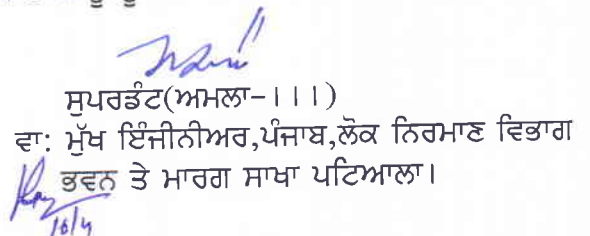 ਸੁਪਰਡੰਟ(ਅਮਲਾ-।।।)
ਵਾ: ਮੁੱਖ ਇੰਜੀਨੀਅਰ,ਪੰਜਾਬ,ਲੋਕ ਨਿਰਮਾਣ ਵਿਭਾਗ
ਭਵਨ ਤੇ ਮਾਰਗ ਸਾਖਾ ਪਟਿਆਲਾ।
16/4